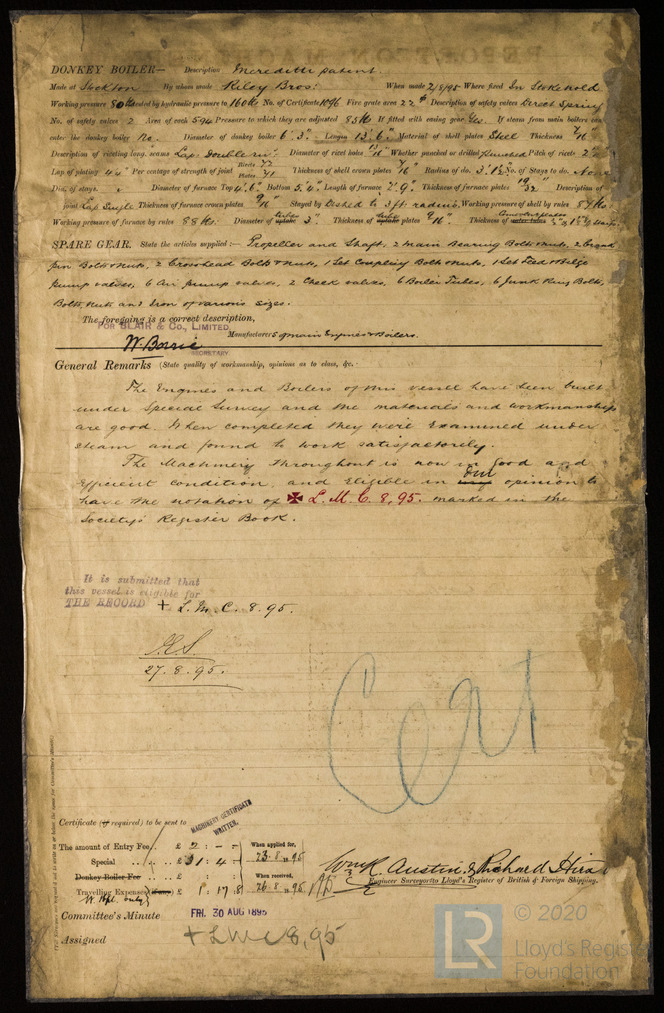 DONKEY BOILER— Description Meredith's patent.
Made at Stockton By whom made Riley Bros: When made 2/8/95 Where fixed In Stokehold
Working pressure 80 lbs tested by hydraulic pressure to 160 lbs No. of Certificate 1096 Fire grate area 22 Description of safety valves Direct Spring
No. of safety valves 2 Area of each 5.94 Pressure to which they are adjusted 85 lb If fitted with easing gear Yes. If steam from main boilers can
enter the donkey boiler No. Diameter of donkey boiler 6'. 3". Length 13'. 6". Material of shell plates Steel Thickness 7/16"
Description of riveting long. seams Lap. Double riv: Diameter of rivet holes 13/16" Whether punched or drilled Punched Pitch of rivets 2
Lap of plating 4 Per centage of strength of joint Rivets 72 Plates 71 Thickness of shell crown plates 7/16" Radius of do. 3'. 1½ No. of Stays to do. None
Dia. of stays. Diameter of furnace Top 4'. 6" Bottom 5'. 4" Length of furnace 7'. 9" Thickness of furnace plates 19/32 Description of
joint Lap Single Thickness of furnace crown plates 9/16" Stayed by Dished to 3 ft. radius. Working pressure of shell by rules 87 lbs.
Working pressure of furnace by rules 88 lbs: Diameter of tube uptake 3". Thickness of tube uptake plates 9/16". Thickness of water tubes
SPARE GEAR. State the articles supplied:— Propeller and Shaft, 2 Main Bearing Bolts & nuts, 2 Crank
pin Bolts & nuts, 2 Crosshead Bolts & nuts, 1 Set Coupling Bolts & nuts, 1 Set Feed & Bilge
pump valves, 6 Air pump valves, 2 Check valves, 6 Boiler Tubes, 6 Junk Ring Bolts,
Bolts, nuts and Iron of various sizes.
The foregoing is a correct description,
FOR BLAIR & Co., LIMITED.
W. Borrie Manufacturers of main Engines & Boilers.
SECRETARY
General Remarks (State quality of workmanship, opinions as to class, &c.
The Engines and Boilers of this vessel have been built
under Special Survey and the materials and workmanship
are good. When completed they were examined under
steam and found to work satisfactorily.
The Machinery throughout is now in Good and
Efficient condition, and Eligible in my our opinion to
have the notation of ✠ L.M.C. 8,95. marked in the
Society's Register Book.
It is submitted that
this vessel is eligible for
THE RECORD + L.M.C. 8.95.
27.8.95.
Cert
MACHINERY CERTIFICATE
WRITTEN.
Certificate (if required) to be sent to
The amount of Entry Fee . . £ 2 : - : - When applied for,
Special . . . . £ 31 : 4 : - 23.8.1895
Donkey Boiler Fee . . . £ : : When received,
Travelling Expenses (if any) £ 1 : 17.8 26.8.1895
W. Hpl. only
Wm R. Austin, & Richard Hirst
Engineer Surveyors to Lloyd's Register of British & Foreign Shipping.
Committee's Minute FRI. 30 AUG 1895
Assigned + LMC 8,95
LR © 2020
Lloyd's Register
Foundation